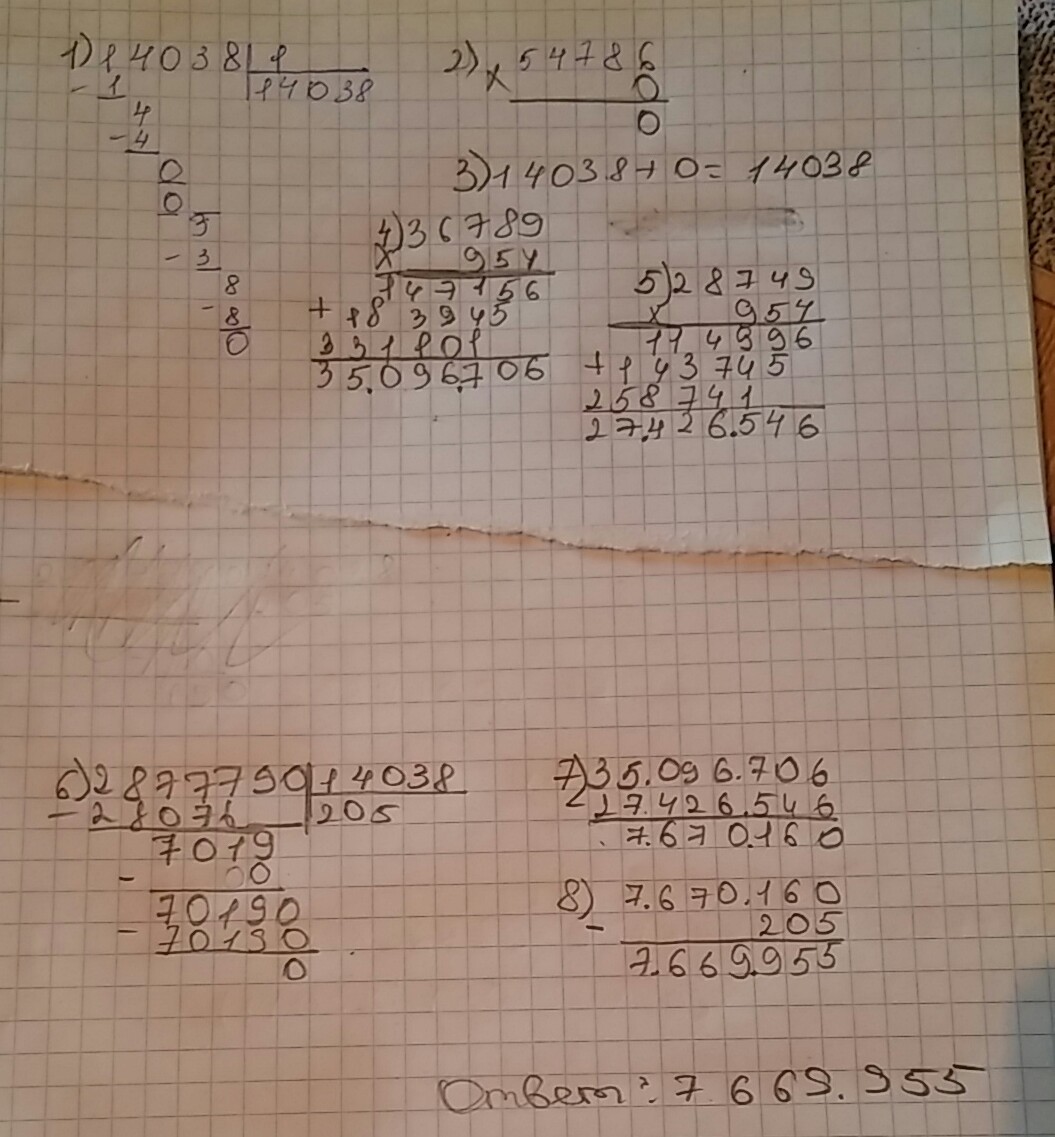 1) 14038 | 1
- 1 | 14038
4
- 4
0
0
3
- 3
8
- 8
0
2) 54786
× 0
0
3) 14038 + 0 = 14038
4) 36789
× 954
147156
+ 18 3945
331101
35.096.706
5) 28749
× 954
114996
+ 143745
258741
27.426.546
6) 2877790 | 14038
- 28076 | 205
7019
- 00
70190
- 70190
0
7) 35.096.706
- 27.426.546
7.670.160
8) 7.670.160
- 205
7.669.955
Ответ: 7 669.955